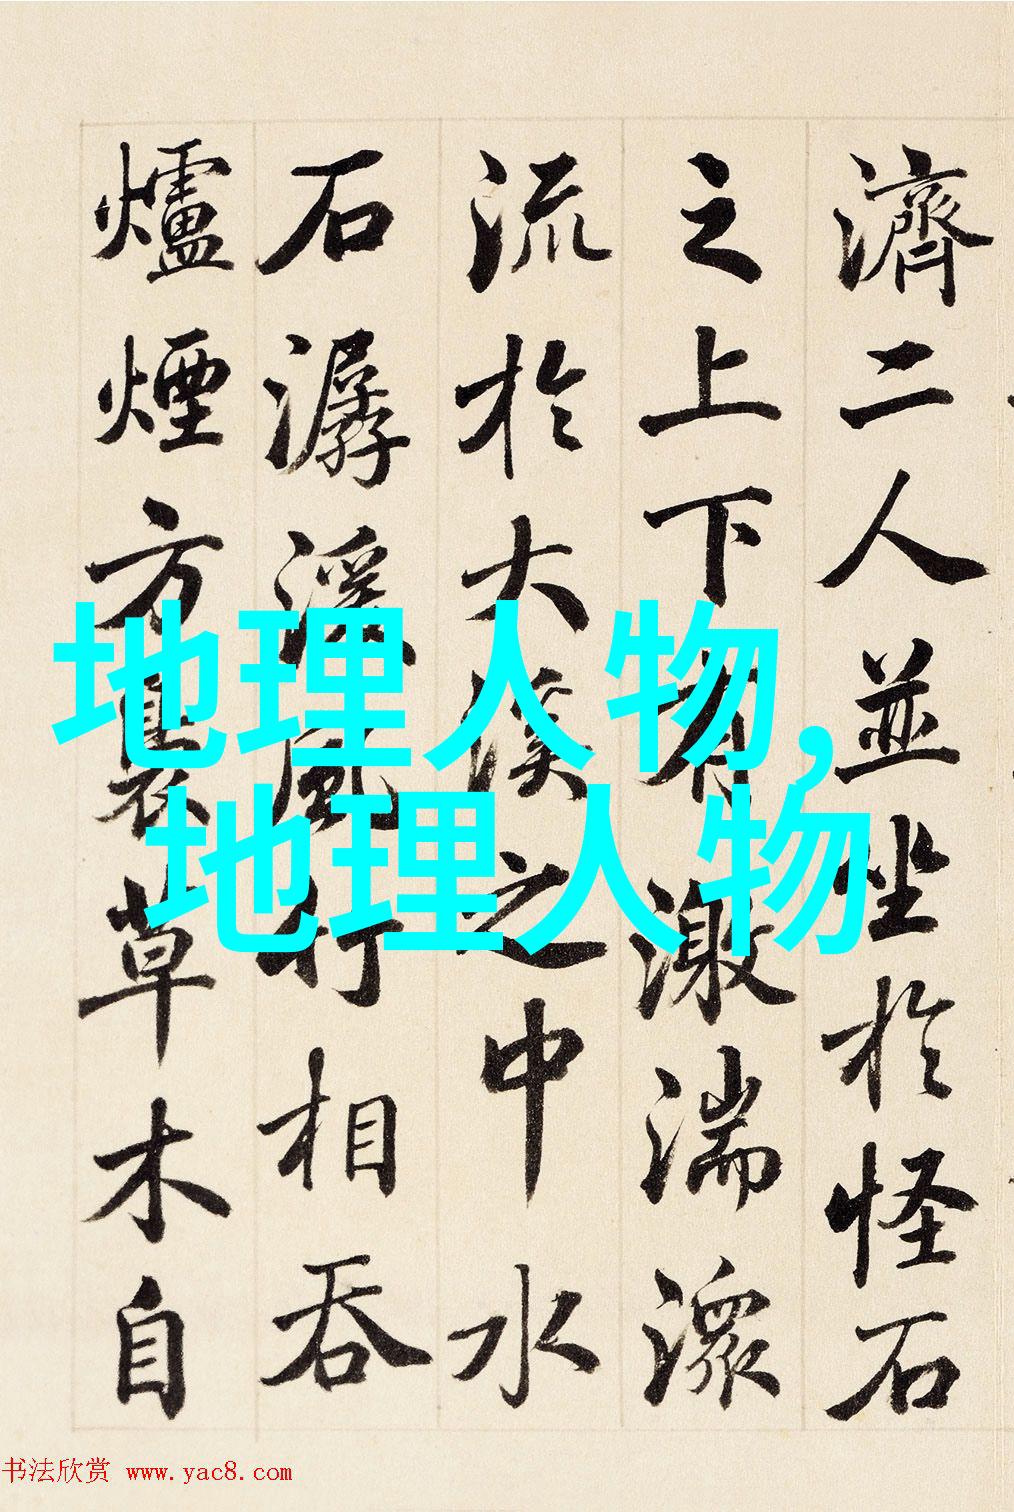 濟二人並坐於怪石
之上下有激湍潀
流於大溪之中水
石潺湲風竹相吞
爐煙方裊草木自
地理人物,
地理人物
书法欣赏 www.yac8.com